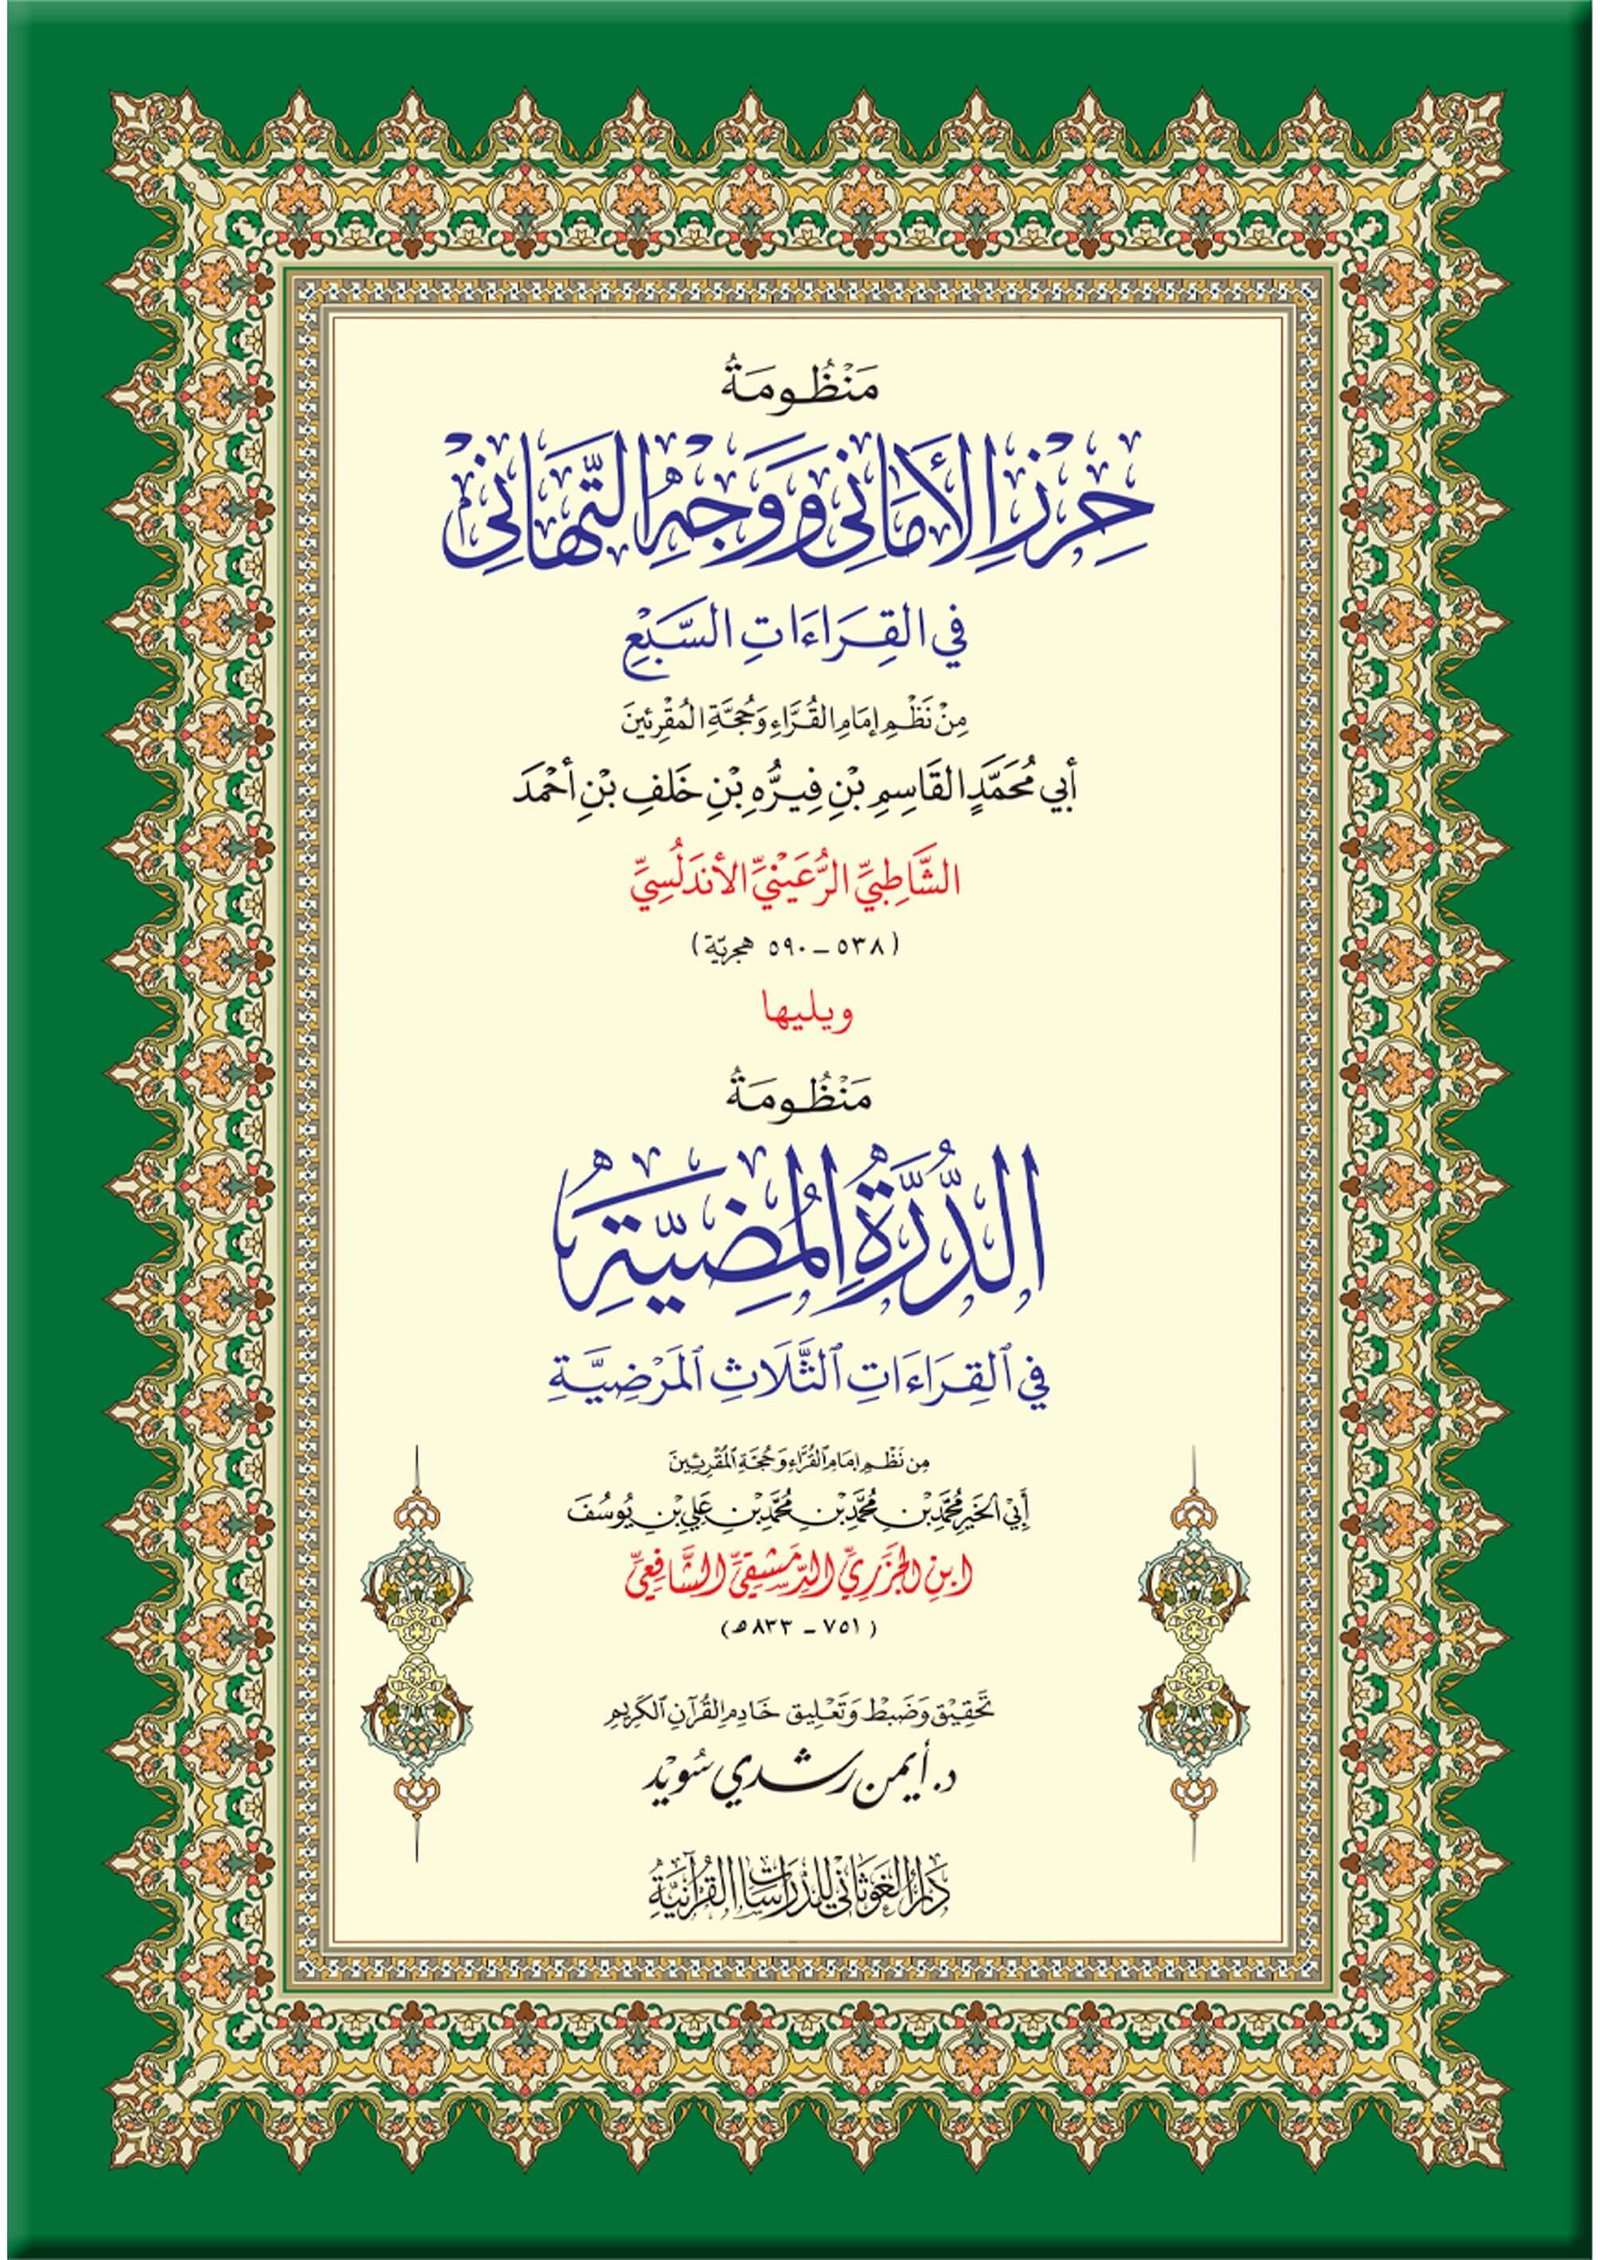 مَنْظُومَةُ
حِرْزِ الأَمَانِي وَوَجْهِ التَّهَانِي
في القِرَاءَاتِ السَّبْعِ
مِنْ نَظْمِ إمَامِ القُرَّاءِ وَحُجَّةِ المُقْرِئينَ
أبي مُحَمَّدٍ القَاسِمِ بْنِ فِيرُّهِ بْنِ خَلَفِ بْنِ أحْمَدَ
الشَّاطِبيِّ الرُّعَيْنيِّ الأندَلُسِيِّ
(٥٣٨ – ٥٩٠ هجريّة)
ويليها
مَنْظُومَةُ
الدُّرَّةِ المُضِيَّةِ
في ٱلقِرَاءَاتِ ٱلثَّلَاثِ ٱلمَرْضِيَّةِ
مِن نَظْمِ إمَامِ القُرَّاءِ وَحُجَّةِ المُقْرِئِينَ
أَبِي الخَيْرِ مُحَمَّدِ بْنِ مُحَمَّدِ بْنِ مُحَمَّدِ بْنِ عَلِيِّ بْنِ يُوسُفَ
ابنِ الجَزَرِيِّ الدِّمَشْقِيِّ الشَّافِعِيِّ
(٧٥١ – ٨٣٣ هـ)
تَحْقِيْق وَضَبْط وَتَعْلِيق خَادِمِ القُرْآنِ الكَرِيمِ
د. أيمن رشدي سُوَيْد
دَارُ الغَوْثَانِي لِلدِّرَاسَاتِ القُرْآنِيَّةِ